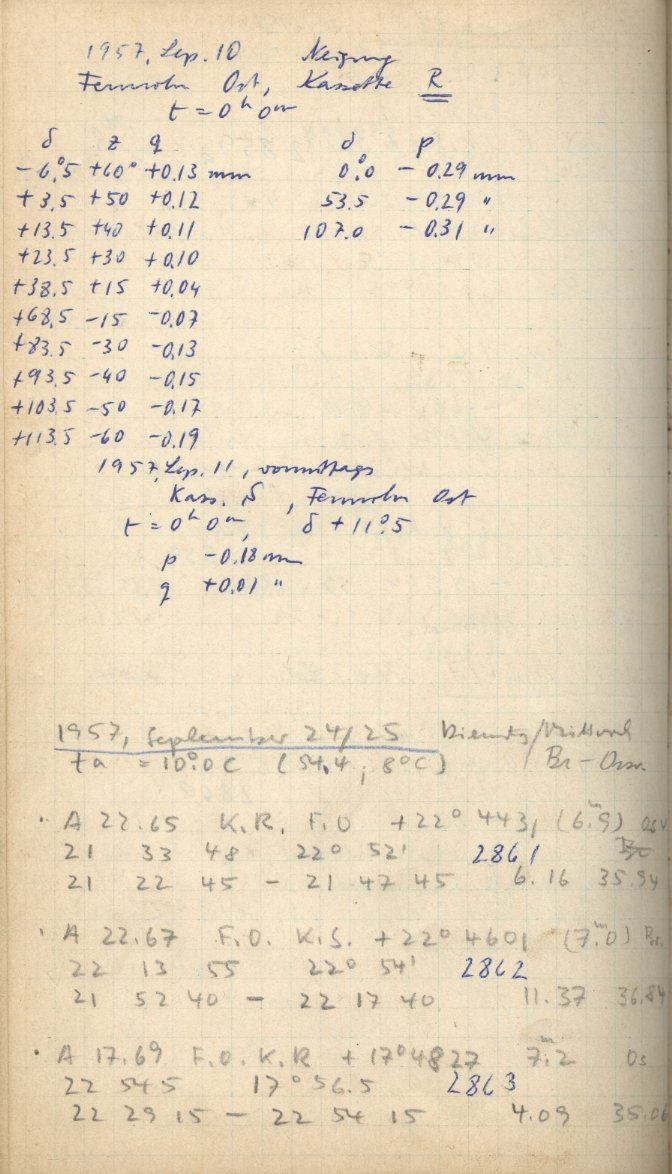 1957, Sep. 10 Neigung
Fernrohr Ost, Kassette R
t = 0ʰ 0ᵐ
δ z q δ p
-6°.5 +60° +0.13 mm 0°.0 -0.29 mm
+3.5 +50 +0.12 53.5 -0.29 "
+13.5 +40 +0.11 107.0 -0.31 "
+23.5 +30 +0.10
+38.5 +15 +0.04
+68.5 -15 -0.07
+83.5 -30 -0.13
+93.5 -40 -0.15
+103.5 -50 -0.17
+113.5 -60 -0.19
1957, Sep. 11, vormittags
Kass. S, Fernrohr Ost
t = 0ʰ 0ᵐ, δ + 11°.5
p -0.18 mm
q +0.01 "
1957, September 24/25 Dienstag/Mittwoch
ta = 10°.0 C (54.4; 8°C) Br-
· A 22.65 K.R. F.O +22° 4431 (6ᵐ.9) Os
21 33 48 22° 52' 2861
21 22 45 - 21 47 45 6.16 35.94
· A 22.67 F.O. K.S. +22° 4601 (7ᵐ.0) Br.
22 13 55 22° 54' 2862
21 52 40 - 22 17 40 11.37 36.84
· A 17.69 F.O. K.R +17° 4827 7ᵐ.2 Os
22 54 5 17° 56.5 2863
22 29 15 - 22 54 15 4.09 35.06